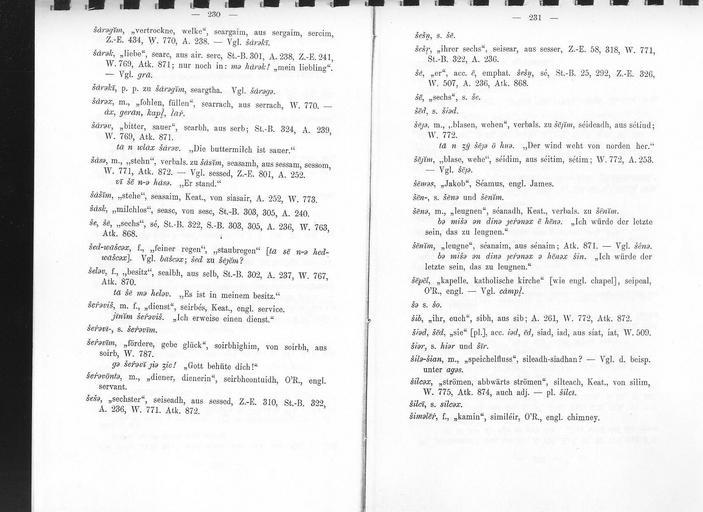 — 230 —
šárəgīm, „vertrockne, welke“, seargaim, aus sergaim, sercim,
Z.-E. 434, W. 770, A. 238. — Vgl. šárəkī.
šárək, „liebe“, searc, aus air. serc, St.-B. 301, A. 238, Z.-E. 241,
W. 769, Atk. 871; nur noch in: mə hárək! „mein liebling“.
— Vgl. grā.
šárəkī, p. p. zu šárəgīm, seargtha. Vgl. šárəgə.
šárəx, m., „fohlen, füllen“, searrach, aus serrach, W. 770. —
āx, gerán, kapl̥, lar.
šárəv, „bitter, sauer“, searbh, aus serb; St.-B. 324, A. 239,
W. 769, Atk. 871.
tā n wlāx šárəv. „Die buttermilch ist sauer.“
šāsə, m., „stehn“, verbals. zu šāsīm, seasamh, aus sessam, sessom,
W. 771, Atk. 872. — Vgl. sessed, Z.-E. 801, A. 252.
vī šē n-ə hāsə. „Er stand.“
šāšīm, „stehe“, seasaim, Keat., von siasair, A. 252, W. 773.
šāsk, „milchlos“, seasc, von sesc, St.-B. 303, 305, A. 240.
še, šē, „sechs“, sé, St.-B. 322, S.-B. 303, 305, A. 236, W. 763,
Atk. 868.
šed-wāšcəx, f., „feiner regen“, „staubregen“ [ta sē n-ə hed-
wāšcəx]. Vgl. bāšcəx; šed zu šējīm?
šeləv, f., „besitz“, sealbh, aus selb, St.-B. 302, A. 237, W. 767,
Atk. 870.
tā šē mə heləv. „Es ist in meinem besitz.“
šerəvīš, m. f., „dienst“, seirbés, Keat., engl. service.
jīnīm šerəvīš. „Ich erweise einen dienst.“
šerəvī-, s. šerəvīm.
šerəvīm, „fördere, gebe glück“, soirbhighim, von soirbh, aus
soirb, W. 787.
gə šerəvī jiə ʒic! „Gott behüte dich!“
šerəvōntə, m., „diener, dienerin“, seirbheontuidh, O'R., engl.
servant.
šešə, „sechster“, seiseadh, aus sessed, Z.-E. 310, St.-B. 322,
A. 236, W. 771. Atk. 872.
— 231 —
šešn̥, s. šē.
šešr̥, „ihrer sechs“, seisear, aus sesser, Z.-E. 58, 318, W. 771,
St.-B. 322, A. 236.
šē, „er“, acc. ē, emphat. šešn̥, sé, St.-B. 25, 292, Z.-E. 326,
W. 507, A. 236, Atk. 868.
šē, „sechs“, s. še.
šēd, s. šiəd.
šējə, m., „blasen, wehen“, verbals. zu šējīm, séideadh, aus sétiud;
W. 772.
„Der wind weht von norden her.“
šējīm, „blase, wehe“, séidim, aus séitim, sétim; W. 772, A. 253.
— Vgl. šējə.
šēməs, „Jakob“, Séamus, engl. James.
šēn-, s. šēnə und šēnīm.
šēnə, m., „leugnen“, séanadh, Keat., verbals. zu šēnīm.
bə mišə ən dinə jerənəx ē hēnə. „Ich würde der letzte
sein, das zu leugnen.“
šēnīm, „leugne“, séanaim, aus sénaim; Atk. 871. — Vgl. šēnə.
bə mišə ən dinə jerənəx ə hēnəx šin. „Ich würde der
letzte sein, das zu leugnen.“
šēpēl, „kapelle, katholische kirche“ [wie engl. chapel], seipeal,
O'R., engl. — Vgl. cāmpl̥.
šə s. šo.
šib, „ihr, euch“, sibh, aus sib; A. 261, W. 772, Atk. 872.
šiəd, šēd, „sie“ [pl.], acc. iəd, ēd, siad, iad, aus siat, iat, W. 509.
šiər, s. hiər und šīr.
šilə-šian, m., „speichelfluss“, sileadh-siadhan? — Vgl. d. beisp.
unter agəs.
šilcəx, „strömen, abwärts strömen“, silteach, Keat., von silim,
W. 775, Atk. 874, auch adj. — pl. šilcī.
šilcī, s. šilcəx.
šiməlēr, f., „kamin“, similéir, O'R., engl. chimney.